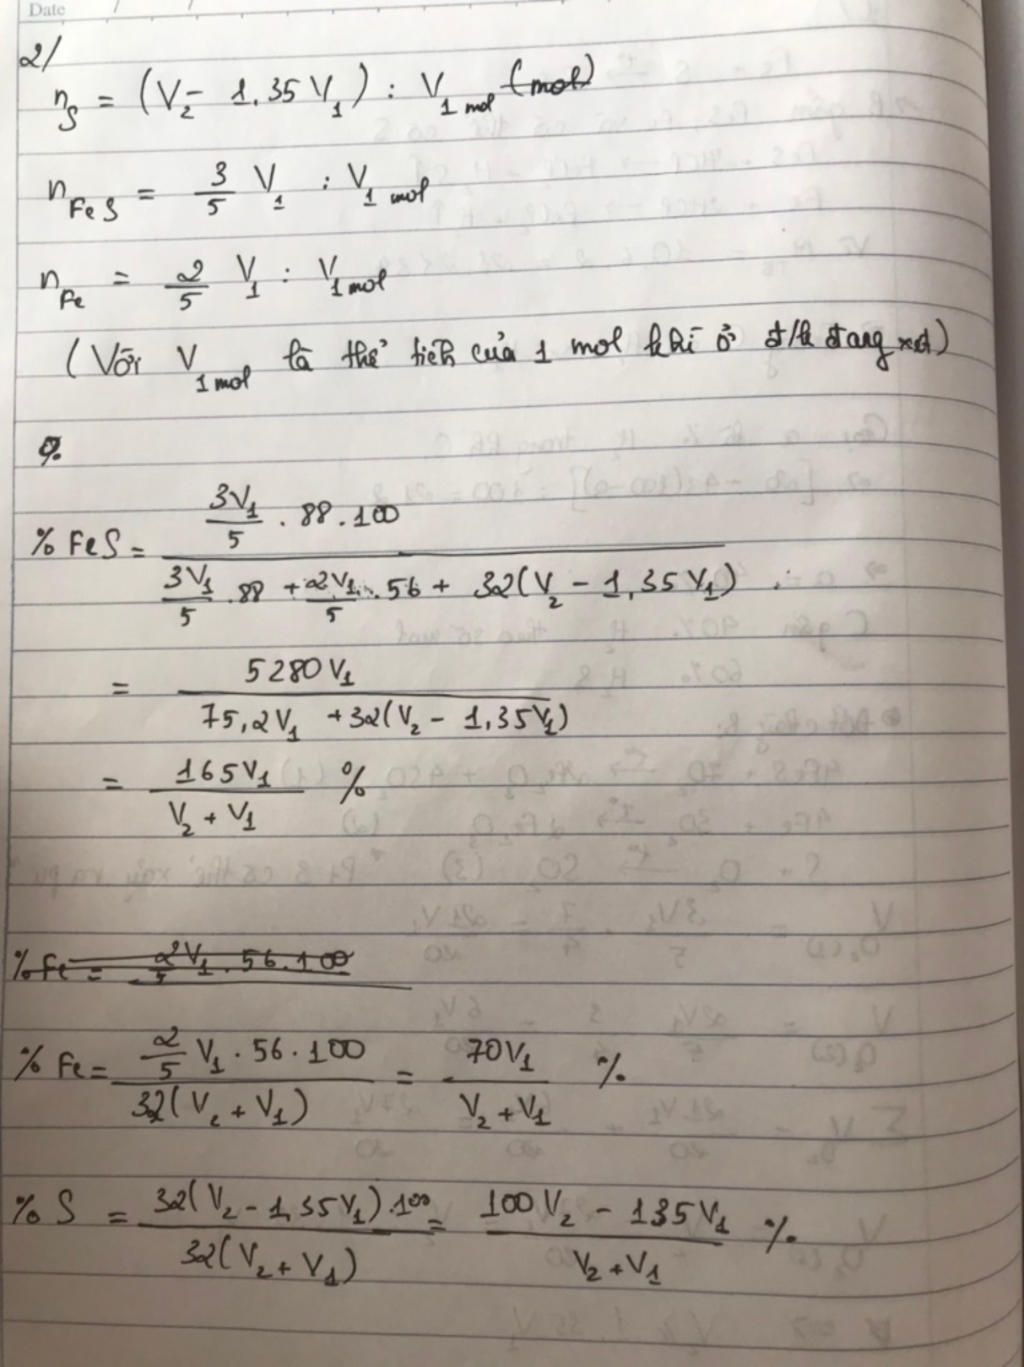 Date
2/
n_S = (V_2 - 1,35 V_1) : V_1 mol (mol)
n_FeS = 3/5 V_1 : V_1 mol
n_Fe = 2/5 V_1 : V_1 mol
(Với V_1 mol là thể tích của 1 mol khí ở đ/k đang xét)
%FeS = (3V_1/5 . 88 . 100) / (3V_1/5 . 88 + 2V_1/5 . 56 + 32(V_2 - 1,35V_1))
= 5280V_1 / (75,2V_1 + 32(V_2 - 1,35V_1))
= 165V_1 / (V_2 + V_1) %
%Fe = 2V_1/5 . 56 . 100
%Fe = (2/5 V_1 . 56 . 100) / (32(V_2 + V_1)) = 70V_1 / (V_2 + V_1) %
%S = (32(V_2 - 1,35V_1) . 100) / (32(V_2 + V_1)) = (100V_2 - 135V_1) / (V_2 + V_1) %